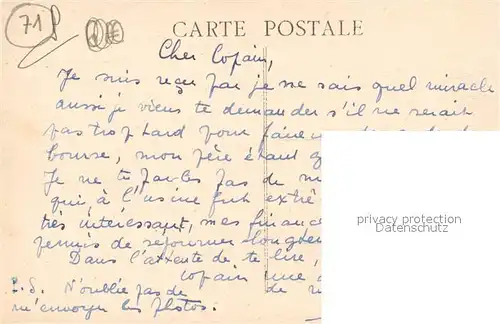 71
CARTE POSTALE
Cher Copain,
Je suis reçu par je ne sais quel miracle
aussi je viens te demander s'il ne serait
pas trop tard pour faire
bourse, mon père étant
Je ne te parles pas de
qui à l'usine fut extrê
très intéressant, mes finance
permis de séjourner longtem
Dans l'attente de te lire,
copain une
P.S. N'oublie pas de
m'envoyer les photos.
privacy protection
Datenschutz